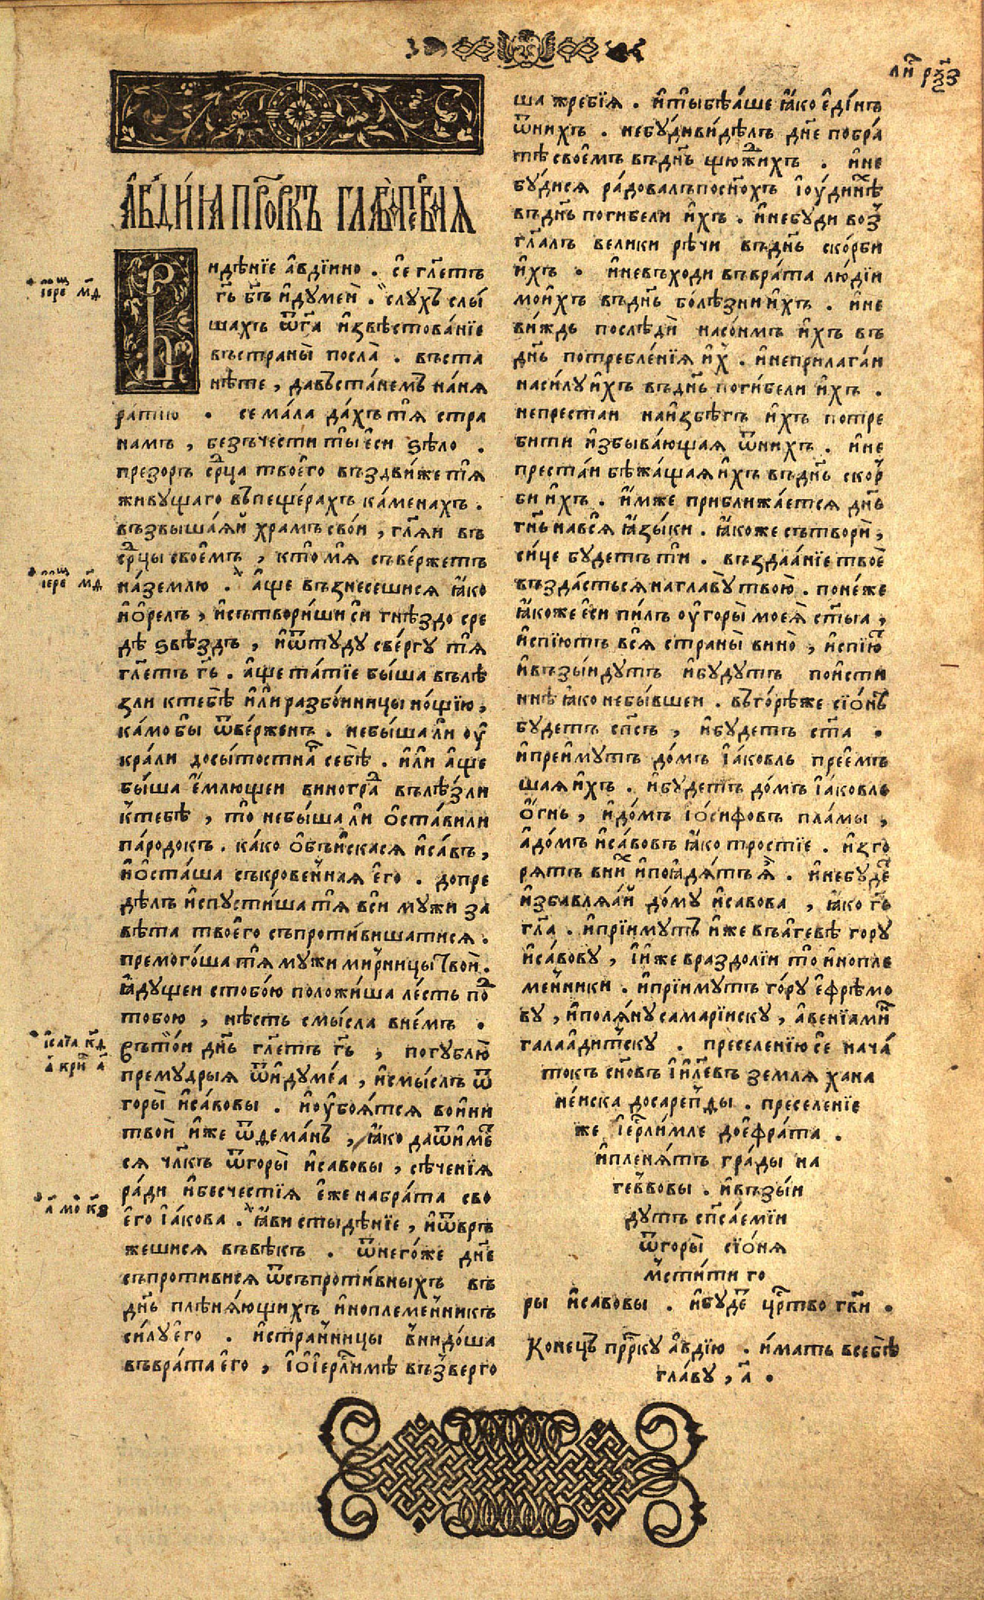 ли рѯз
А҆вди́ꙗ прⷪ҇ркъ глава̀ пе́рваѧ
Ви́дѣнїе а҆вдїино . сѐ гл҃етъ
гь҃ бг҃ъ и҆дꙋме́и . слꙋхъ слы́
шахъ ѿг҃а и҆звѣ́стова́нїе
въстраны̀ посла̀ . въста
нѣте , давъста́немъ на́нѧ
ратїю . се ма́ла да́хъ тѧ̀ стра
намъ , безъче́сти ты̀ є҆сѝ ѕѣ́ло .
презоръ срⷣца твоего̀ въздви́же тѧ̀
живꙋщаго въпеще́рахъ ка́менахъ .
възвыша́ѧй хра́мъ сво́и , гл҃ѧи въ
срⷣцы свое́мъ , кто̀ мѧ̀ съве́ржетъ
на́землю . а҆́ще възнесешисѧ ꙗ҆́ко
и҆ѻ҆ре́лъ , и҆сътвори́ши сѝ гнѣздо сре
дѣ̀ ѕвѣздъ , и҆ѿтꙋдꙋ све́ргꙋ тѧ̀
гл҃етъ гь҃ . а҆ще та́тїе бы́ша вълѣ́
зли ктебѣ̀ и҆лѝ разбо́иницы но́щїю ,
ка́мо бы ѿве́рженъ . небы́ша ли ᲂу҆
кра́ли досы́тости себѣ̀ . и҆лѝ а҆ще
бы́ша є҆́млющеи виногра́ⷣ вълѣ́зли
ктебѣ̀ , то̀ небыша ли ѡ҆ста́вили
па́родокъ . ка́ко ѻ҆бы́искасѧ и҆са́въ ,
и҆ѻ҆ста́ша съкрове́ннаѧ є҆го̀ . допре
дѣ́лъ и҆спꙋсти́ша тѧ̀ всѝ мꙋжи за
вѣта твоего̀ съпроти́вишатисѧ .
премого́ша тѧ̀ мꙋ́жи ми́рницы твоѝ .
ꙗ҆дꙋщеи стобо́ю положи́ша ле́сть поⷣ
тобою , нѣсть смы́сла вне́мъ .
въто́и дн҃ь гл҃етъ гь҃ , погꙋблю̀
премꙋдрыѧ ѿи҆дꙋме́а , и҆смы́слъ ѿ
горы̀ и҆са́вовы . и҆ᲂу҆боѧ́тсѧ во́ини
твоѝ и҆́же ѿдема́нъ , ꙗ҆ко даѿи́ме́т
сѧ чл҃къ ѿгоры̀ и҆са́вовы , сѣче́нїѧ
ра́ди и҆бесче́стїѧ є҆́же набра́та сво
его̀ і҆а́кова . ꙗ҆ви стыде́нїе , и҆ѿврь
жешисѧ въвѣ́къ . ѿнего́же дн҃е
съпротивисѧ ѿсъпроти́вныхъ въ
дн҃ь плѣнѧ́ющихъ и҆ноплеме́нникъ
си́лꙋ є҆го̀ . и҆стра́нницы внидо́ша
въвра́та є҆го̀ , і҆ѻ҆і҆ерⷭ҇ли́мѣ възверго
ша жре́бїѧ . и҆ты̀бѣа́ше ꙗ҆́ко є҆ди́нъ
ѿни́хъ . небꙋ́дивидѣлъ дн҃е побра
тѣ своемъ въдн҃ь щюжи́хъ . и҆не
бꙋ́дисѧ ра́довалъпосн҃охъ і҆ꙋди́нѣⷯ
въдн҃ь погибели и҆́хъ . и҆небꙋди воз
гл҃алъ велики рѣчи въдн҃ь ско́рби
и҆хъ . и҆невъходи въвра́та лю́дїи
мои́хъ въдн҃ь болѣзни и҆хъ . и҆не
ви́ждь послѣдѝ на́соимъ и҆хъ въ
дн҃ь потребле́нїѧ и҆хⷯ . и҆неприлага́и
наси́лꙋ и҆хъ въдн҃ь поги́бели и҆хъ .
непреста́и наи҆збѣ́гъ и҆хъ потре
бити и҆збыва́ющаѧ ѿни́хъ . и҆не
преста́и бѣжа́щаѧ и҆хъ въдн҃ь скорⷬ
би и҆хъ . и҆мже приближа́етсѧ дн҃ь
гн҃ь навсѧ̀ ꙗ҆зы́ки . ꙗ҆коже сътворѝ ,
си́це бꙋ́детъ тѝ . въздаа́нїе твоѐ
възда́стьсѧ наглавꙋ̀ твою̀ . поне́же
ꙗ҆коже є҆сѝ пи́лъ ᲂу҆горы̀ моеѧ̀ ст҃ыа ,
и҆спїю́тъ всѧ̀ страны̀ вино̀ , и҆спїю́ⷮ
и҆възы́идꙋтъ и҆бꙋ́дꙋтъ по́исти
ннѣ ꙗ҆ко небы́вшеи . въгорѣ́же сїо́нъ
бꙋ́детъ сп҃съ , и҆бꙋ́детъ ст҃а .
и҆преи́мꙋтъ до́мъ і҆а́ковль прее́мъ
шаѧ и҆хъ . и҆бꙋдетъ до́мъ і҆а́ковль
о҆́гнь , и҆до́мъ і҆ѻ́сифовъ пла́мы ,
а҆до́мъ и҆са́вовъ ꙗ҆ко тро́стїе . и҆зго
рѧ́тъ вни́хъ и҆поꙗ҆дѧ́тъ ѧ҆̀ . и҆небꙋ́деⷮ
и҆збавлѧ́ѧй до́мꙋ и҆са́вова , ꙗ҆ко гь҃
гл҃а . и҆прїи́мꙋтъ и҆же въа҆ге́вѣ го́рꙋ
и҆са́вовꙋ , і҆и҆же враздо́лїи то̀ и҆нопле
ме́нники . и҆прїи́мꙋтъ го́рꙋ є҆фрѣ́мо
вꙋ , и҆по́лѧнꙋ самарі́искꙋ , а҆венїами́ⷩ
галаади́тскꙋ . преселе́нїю се нача́
токъ сн҃овъ і҆и҃левъ землѧ̀ хана
не́иска досаре́пды . преселе́нїе
же і҆ерⷭ҇ли́мле дое҆фра́та .
и҆пленѧ́тъ гра́ды на
ге́ввовы . и҆възы́и
дꙋтъ сп҃са́емїи
ѿгоры̀ сїо́нѧ
мсти́ти го
ры̀ и҆са́вовы . и҆бꙋ́деⷮ црⷭ҇тво гв҃и .
Коне́цъ прⷪ҇ркꙋ а҆́вдїю . и҆́мать всебѣ̀
гла́вꙋ , а҃ .